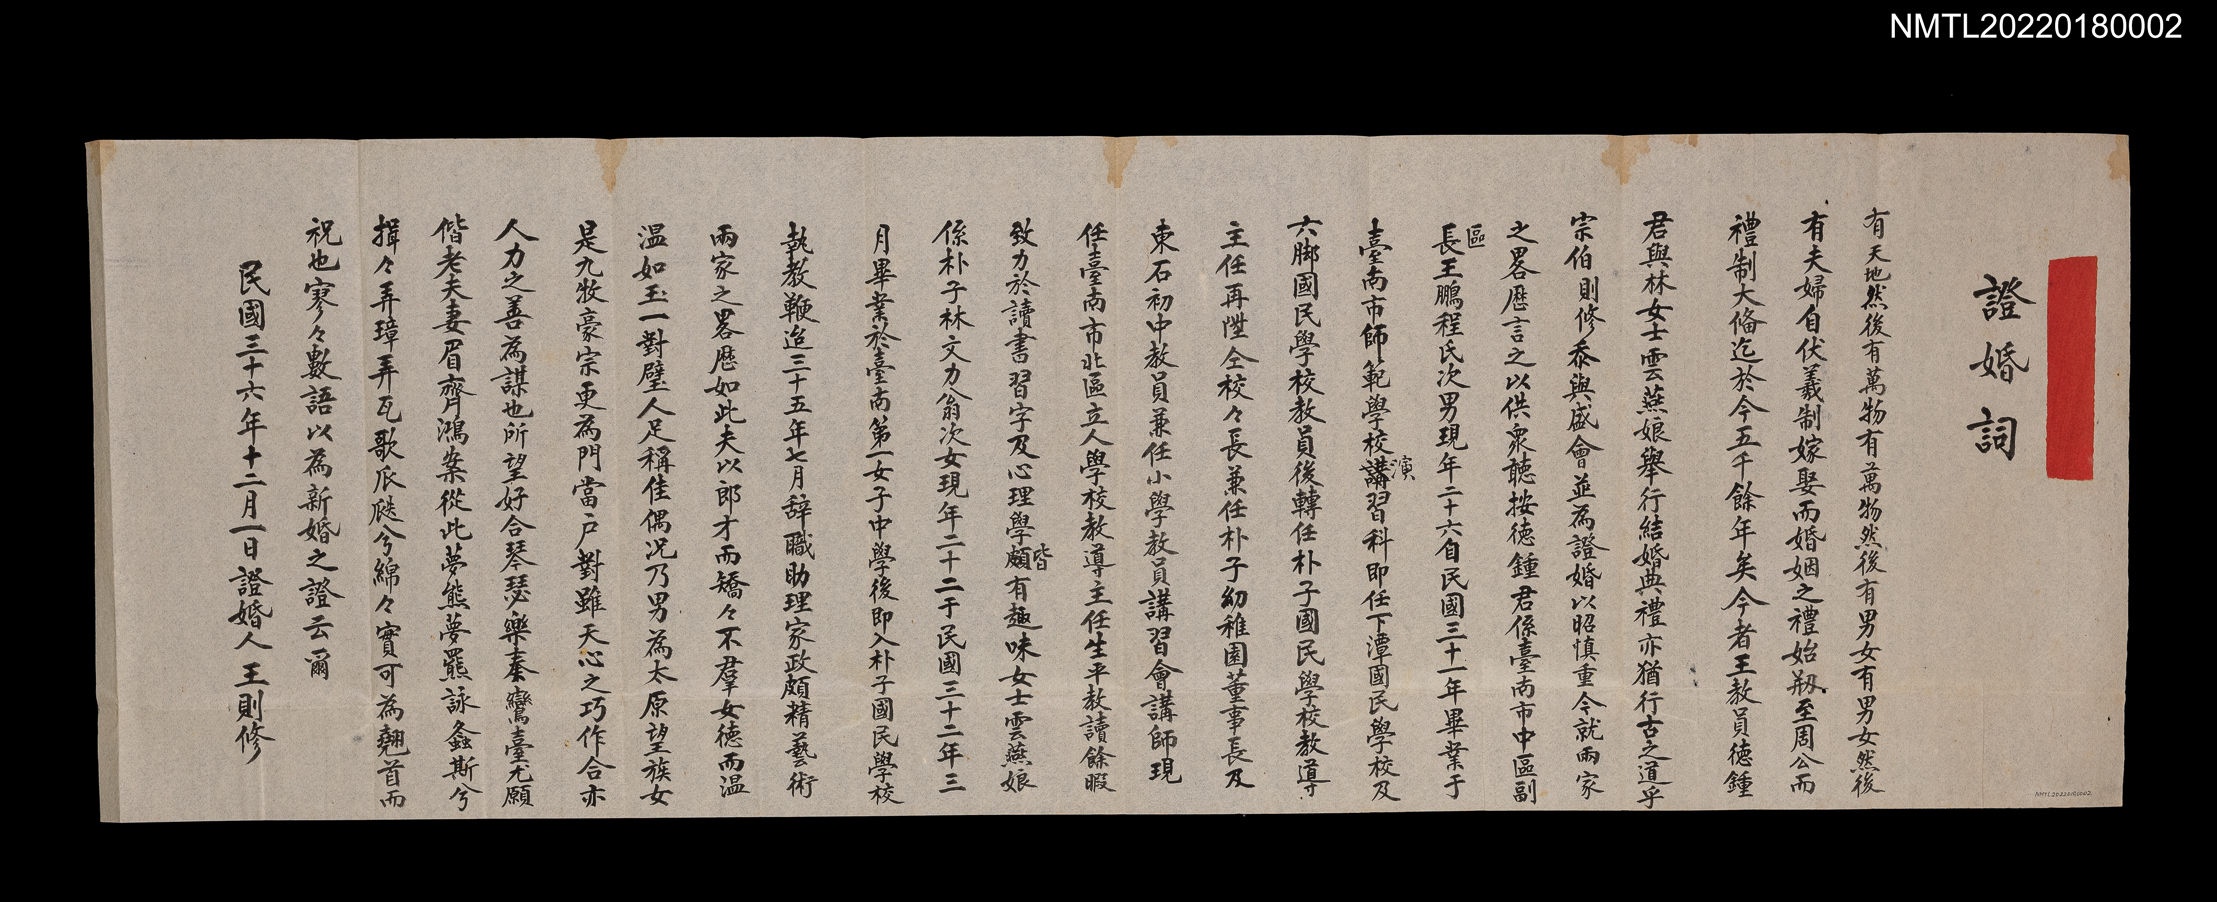 NMTL20220180002
證婚詞
有天地然後有萬物有萬物然後有男女有男女然後
有夫婦自伏羲制嫁娶而婚姻之禮始剏至周公而
禮制大俻迄於今五千餘年矣今者王教員德鍾
君與林女士雲燕娘舉行結婚典禮亦猶行古之道乎
宗伯則修忝與盛會並為證婚以昭慎重今就兩家
之畧歷言之以供衆聽按德鍾君係臺南市中區副
區
長王鵬程氏次男現年二十六自民國三十一年畢業于
臺南市師範學校講習科即任下潭國民學校及
演
六脚國民學校教員後轉任朴子國民學校教導
主任再陞仝校々長兼任朴子幼稚園董事長及
東石初中教員兼任小學教員講習會講師現
任臺南市北區立人學校教導主任生平教讀餘暇
致力於讀書習字及心理學頗有趣味女士雲燕娘
皆
係朴子林文力翁次女現年二十二于民國三十二年三
月畢業於臺南第一女子中學後即入朴子國民學校
執教鞭迨三十五年七月辞職助理家政頗精藝術
兩家之畧歷如此夫以郎才而矯々不羣女德而温
温如玉一對璧人足稱佳偶况乃男為太原望族女
是九牧豪宗更為門當户對雖天心之巧作合亦
人力之善為謀也所望好合琴瑟樂奏鸞臺尤願
偕老夫妻眉齊鴻案從此夢熊夢羆詠螽斯兮
揖々弄璋弄瓦歌瓜瓞兮綿々實可為翹首而
祝也寥々數語以為新婚之證云爾
民國三十六年十二月一日證婚人王則修
NMTL20220180002